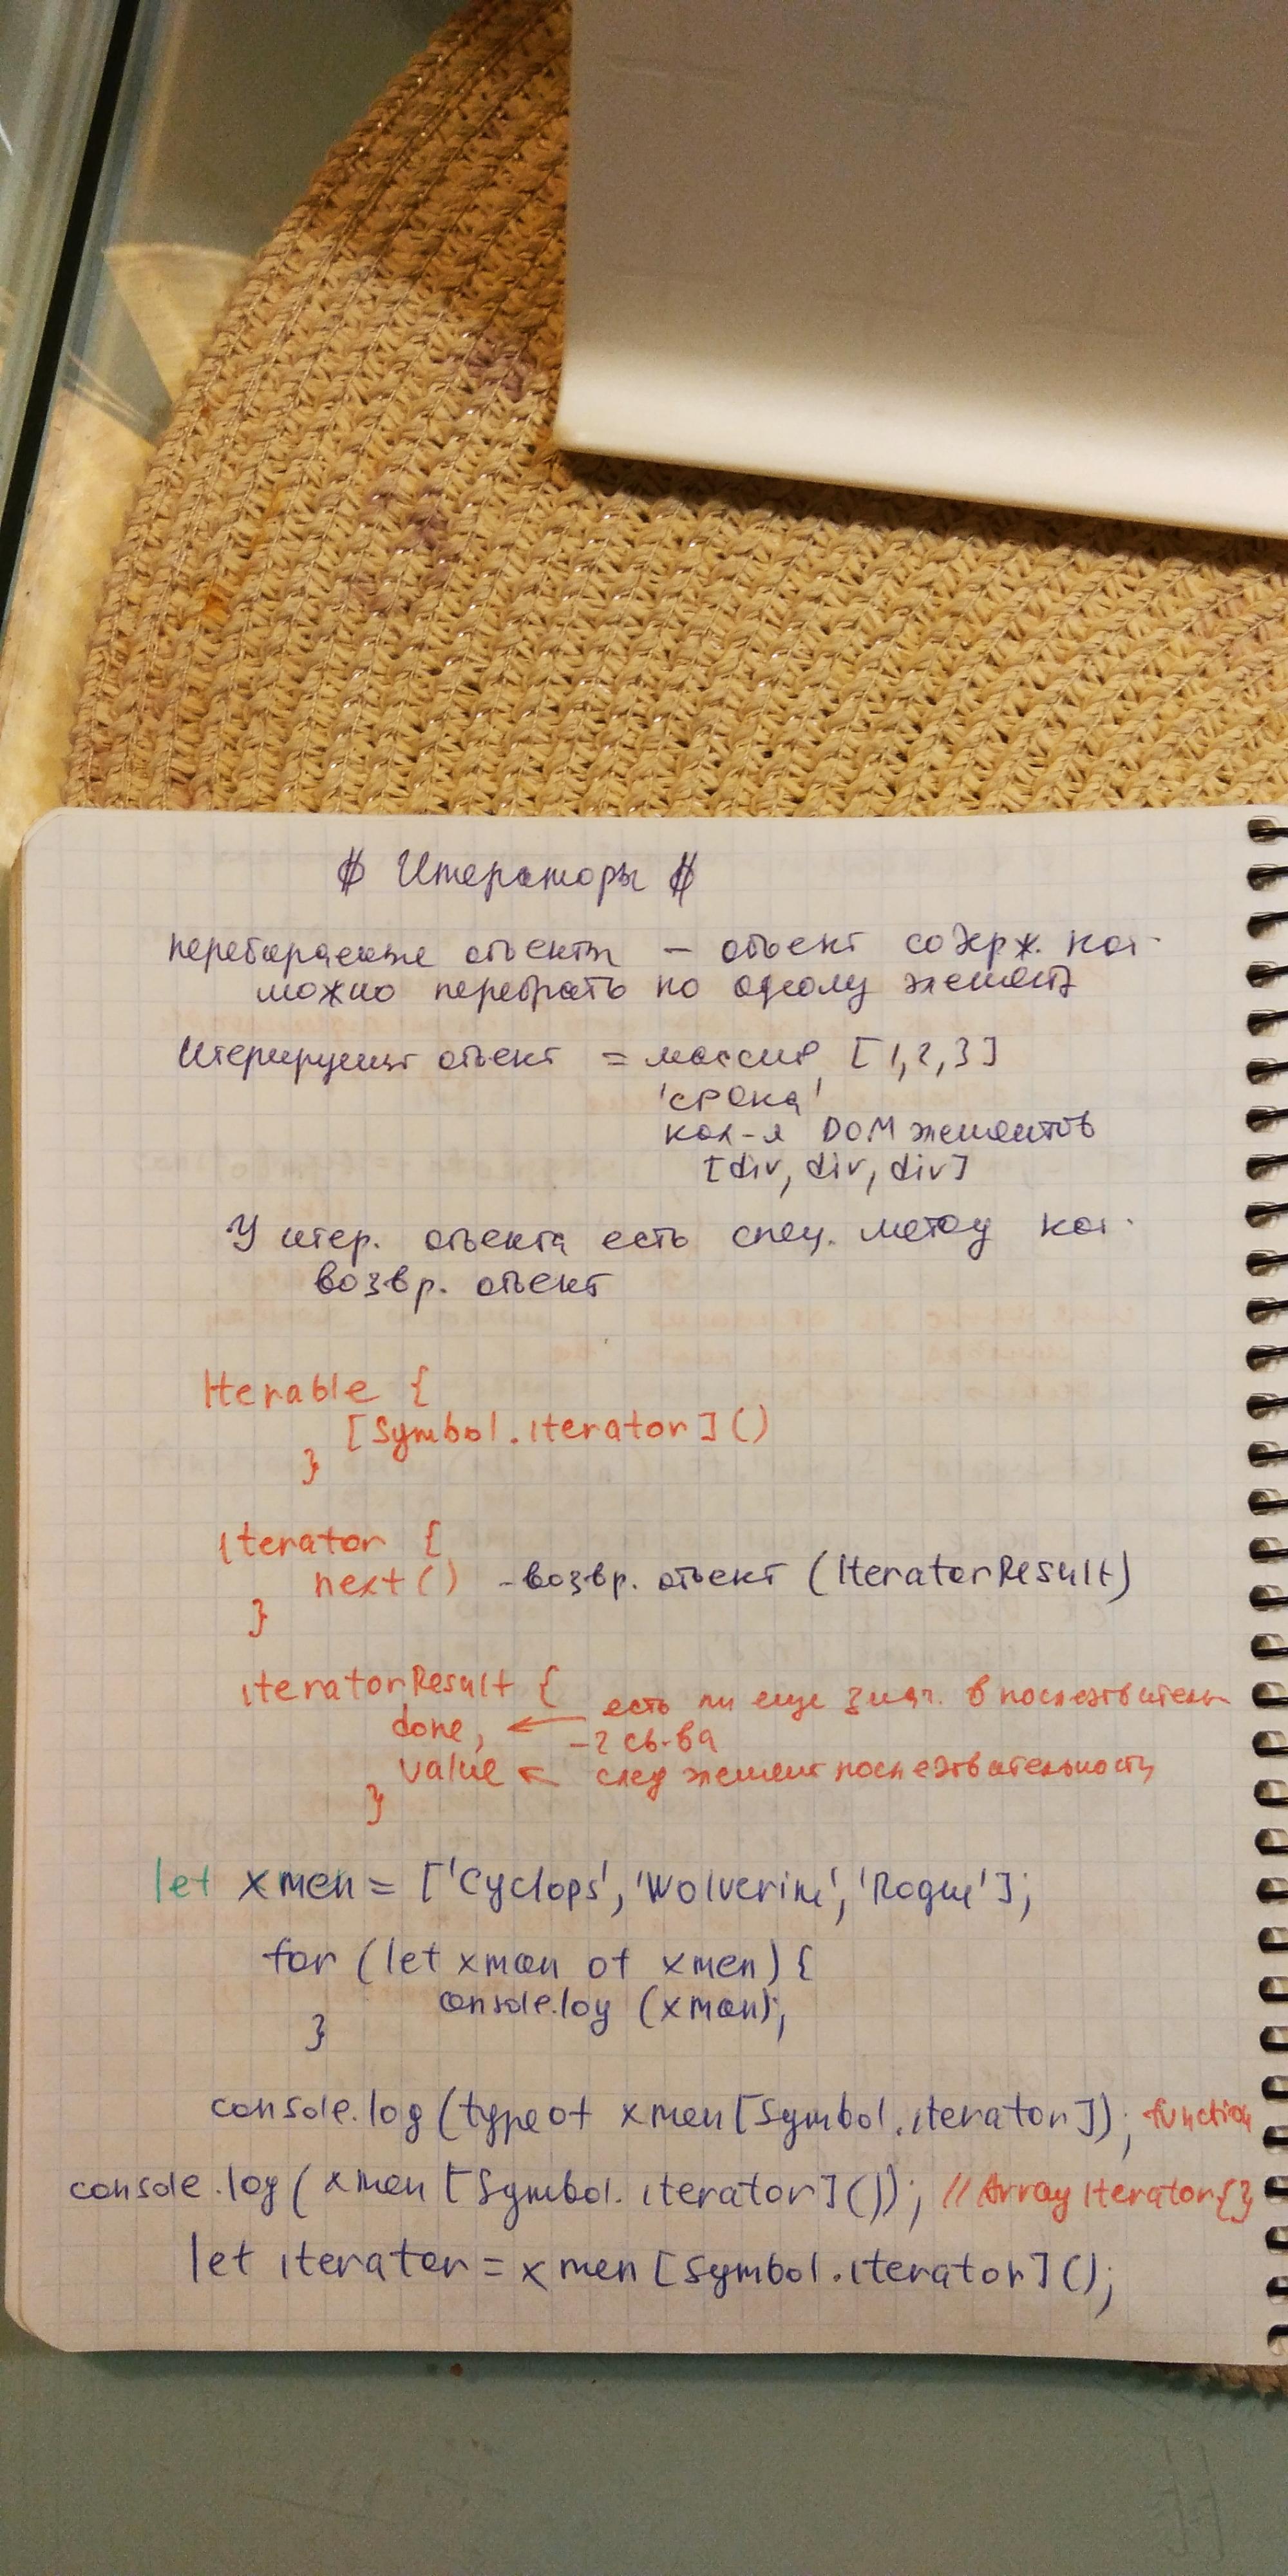 # Итераторы #
перебираемые объекты – объект содерж. кот.
можно перебрать по одному элементу
Итерируемый объект = массив [1,2,3]
'срока'
кол-я DOM элементов
[div, div, div]
У итер. объекта есть спец. метод кот.
возвр. объект
Iterable {
[Symbol.iterator]()
}
Iterator {
next() - возвр. объект (IteratorResult)
}
iteratorResult {
есть ли еще знач. в последвитель-
done, ←
-2 св-ва
value ← след элемент последвательности
}
let xmen = ['Cyclops', 'Wolverine', 'Rogue'];
for (let xman of xmen) {
console.log (xman);
}
console.log (typeof xmen[Symbol.iterator]); function
console.log ( xmen [Symbol.iterator]()); //Array Iterator{}
let iterator = xmen [Symbol.iterator]();